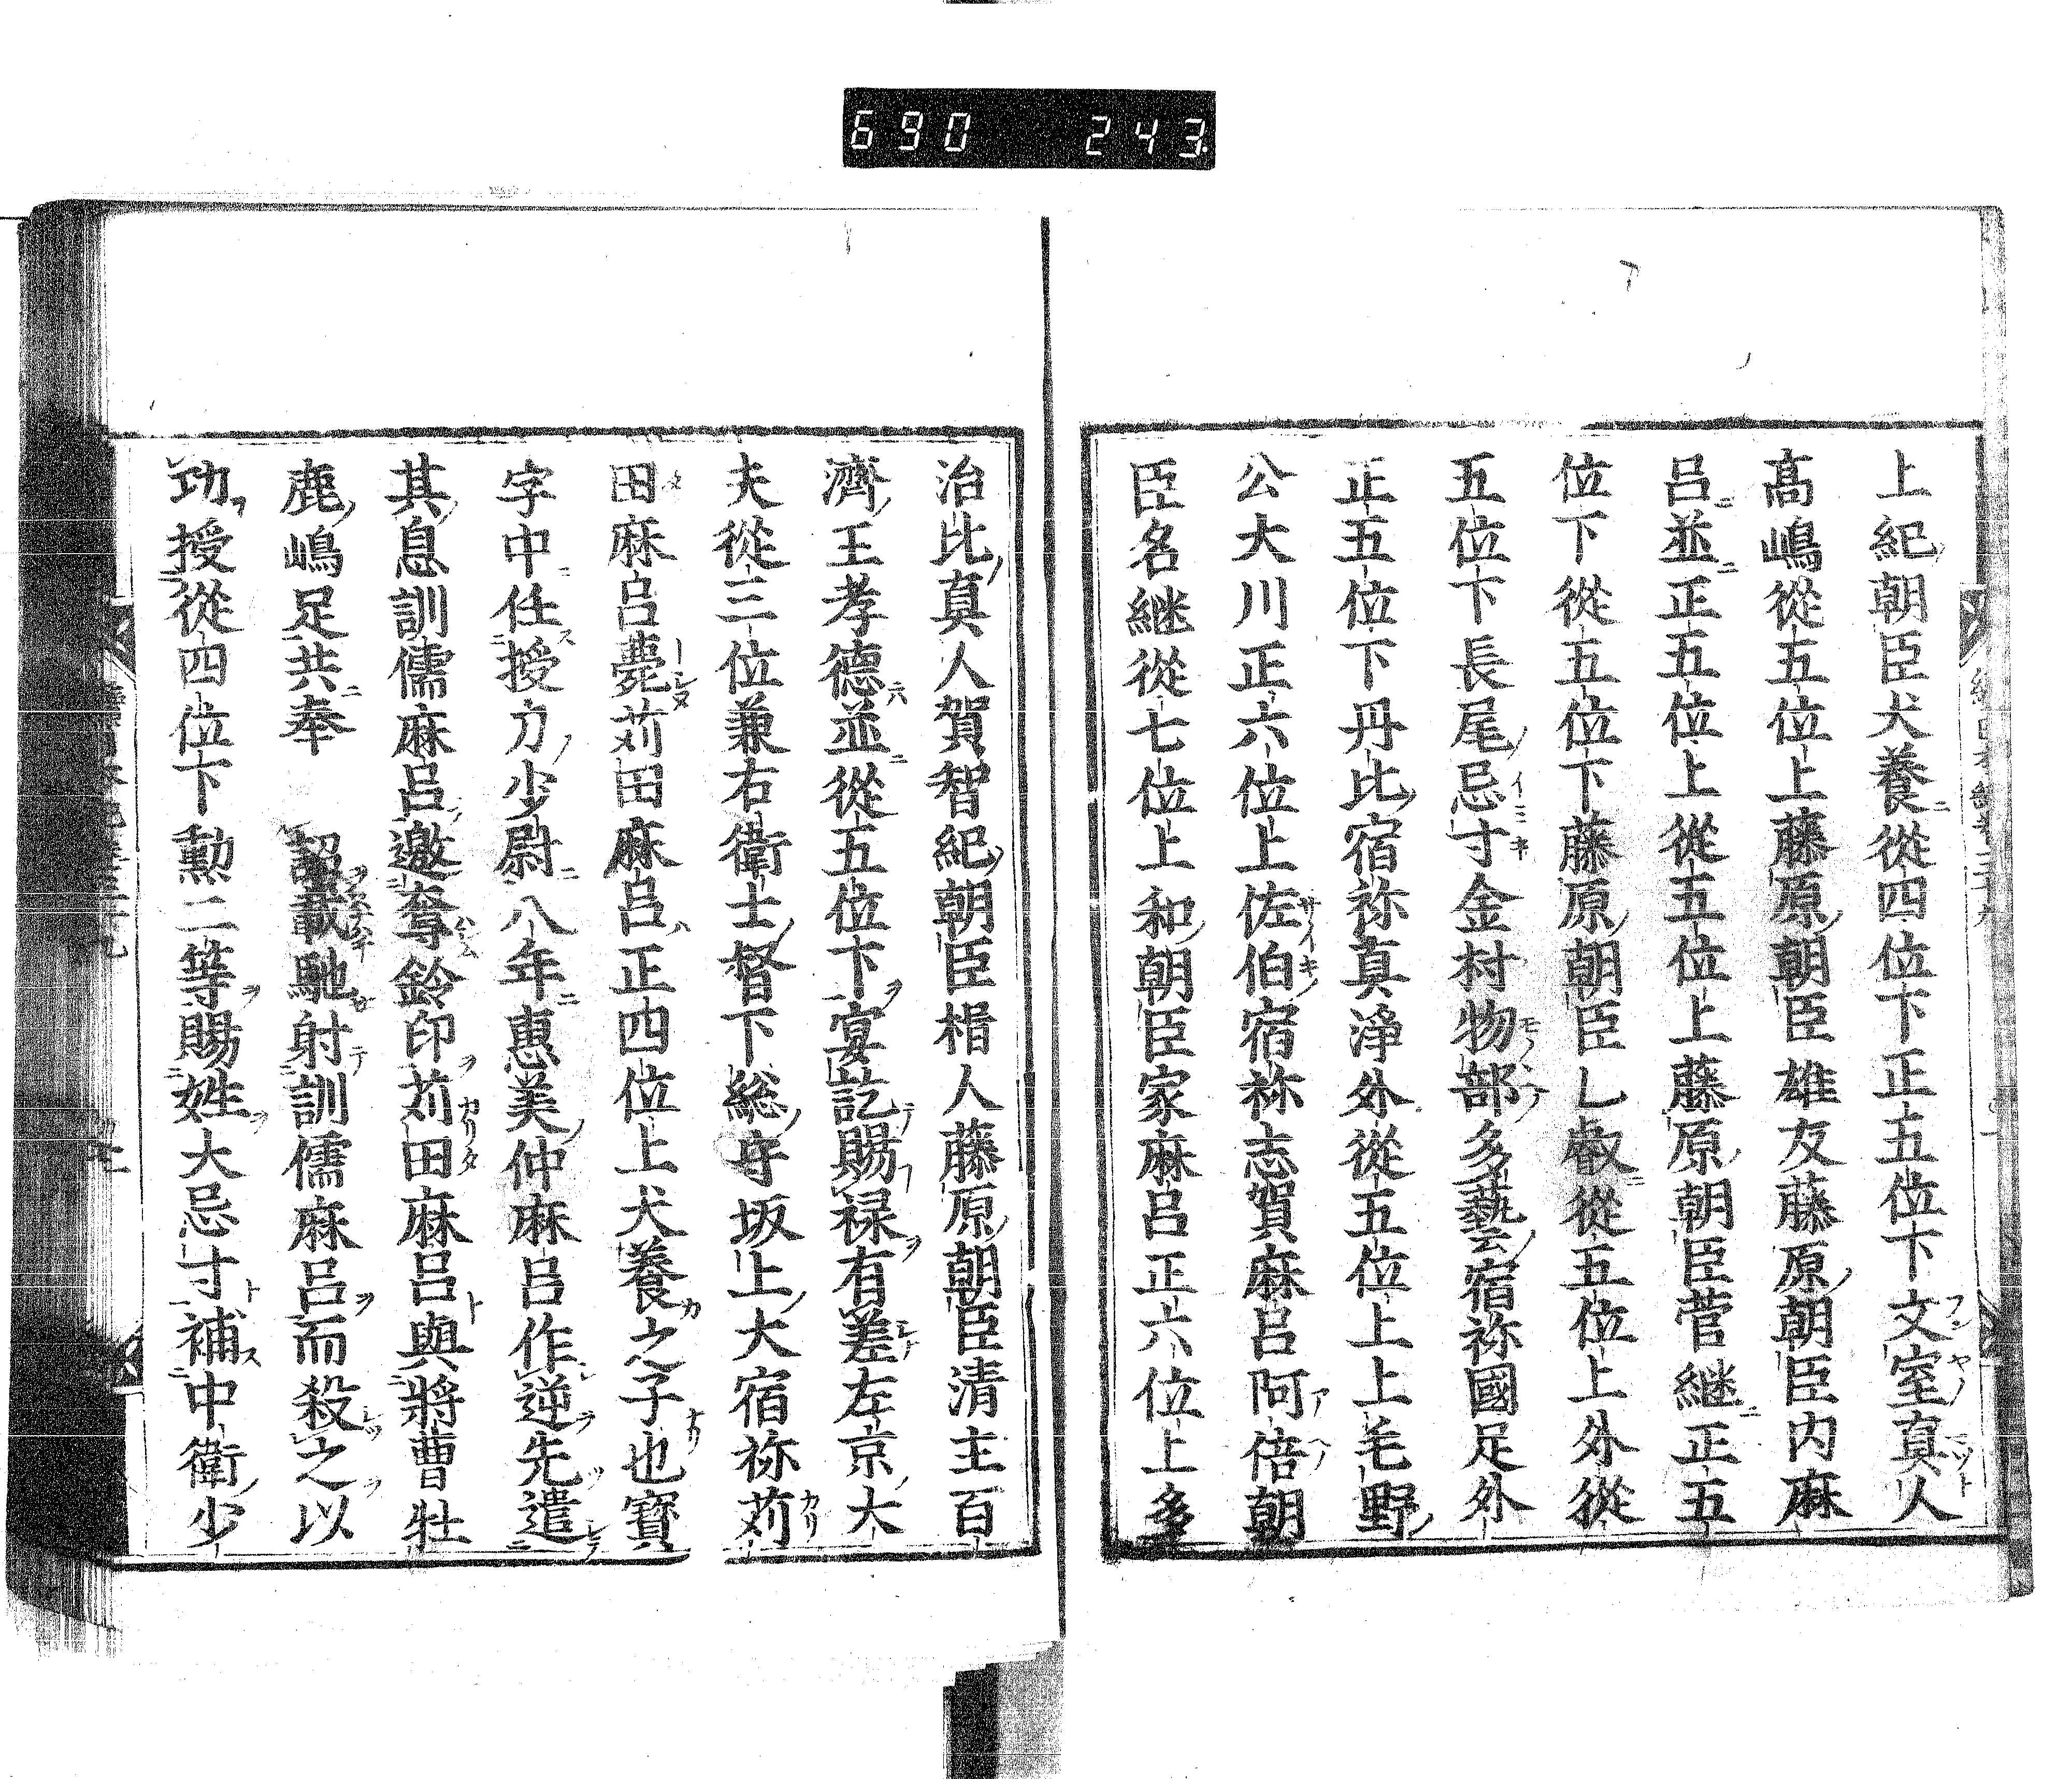 690 243
上紀朝臣犬養從四位下正五位下文室真人
髙嶋從五位上藤原朝臣雄友藤原朝臣内麻
呂並正五位上從五位上藤原朝臣菅継正五
位下從五位下藤原朝臣乚叡從五位上外從
五位下長尾忌寸金村物部多藝宿祢國足外
正五位下丹比宿祢真淨外從五位上上毛野
公大川正六位上佐伯宿祢志賀麻呂阿倍朝
臣名継從七位上和朝臣家麻呂正六位上多
治比真人賀智紀朝臣楫人藤原朝臣清主百
濟王孝德並從五位下宴訖賜禄有差左京大
夫從三位兼右衛士督下総守坂上大宿祢苅
田麻呂薨苅田麻呂正四位上犬養之子也寳
字中任授刀少尉八年惠美仲麻呂作逆先遣
其息訓儒麻呂邀奪鈴印苅田麻呂與將曹牡
鹿嶋足共奉 詔載馳射訓儒麻呂而殺之以
功授從四位下勲二等賜姓大忌寸補中衛少